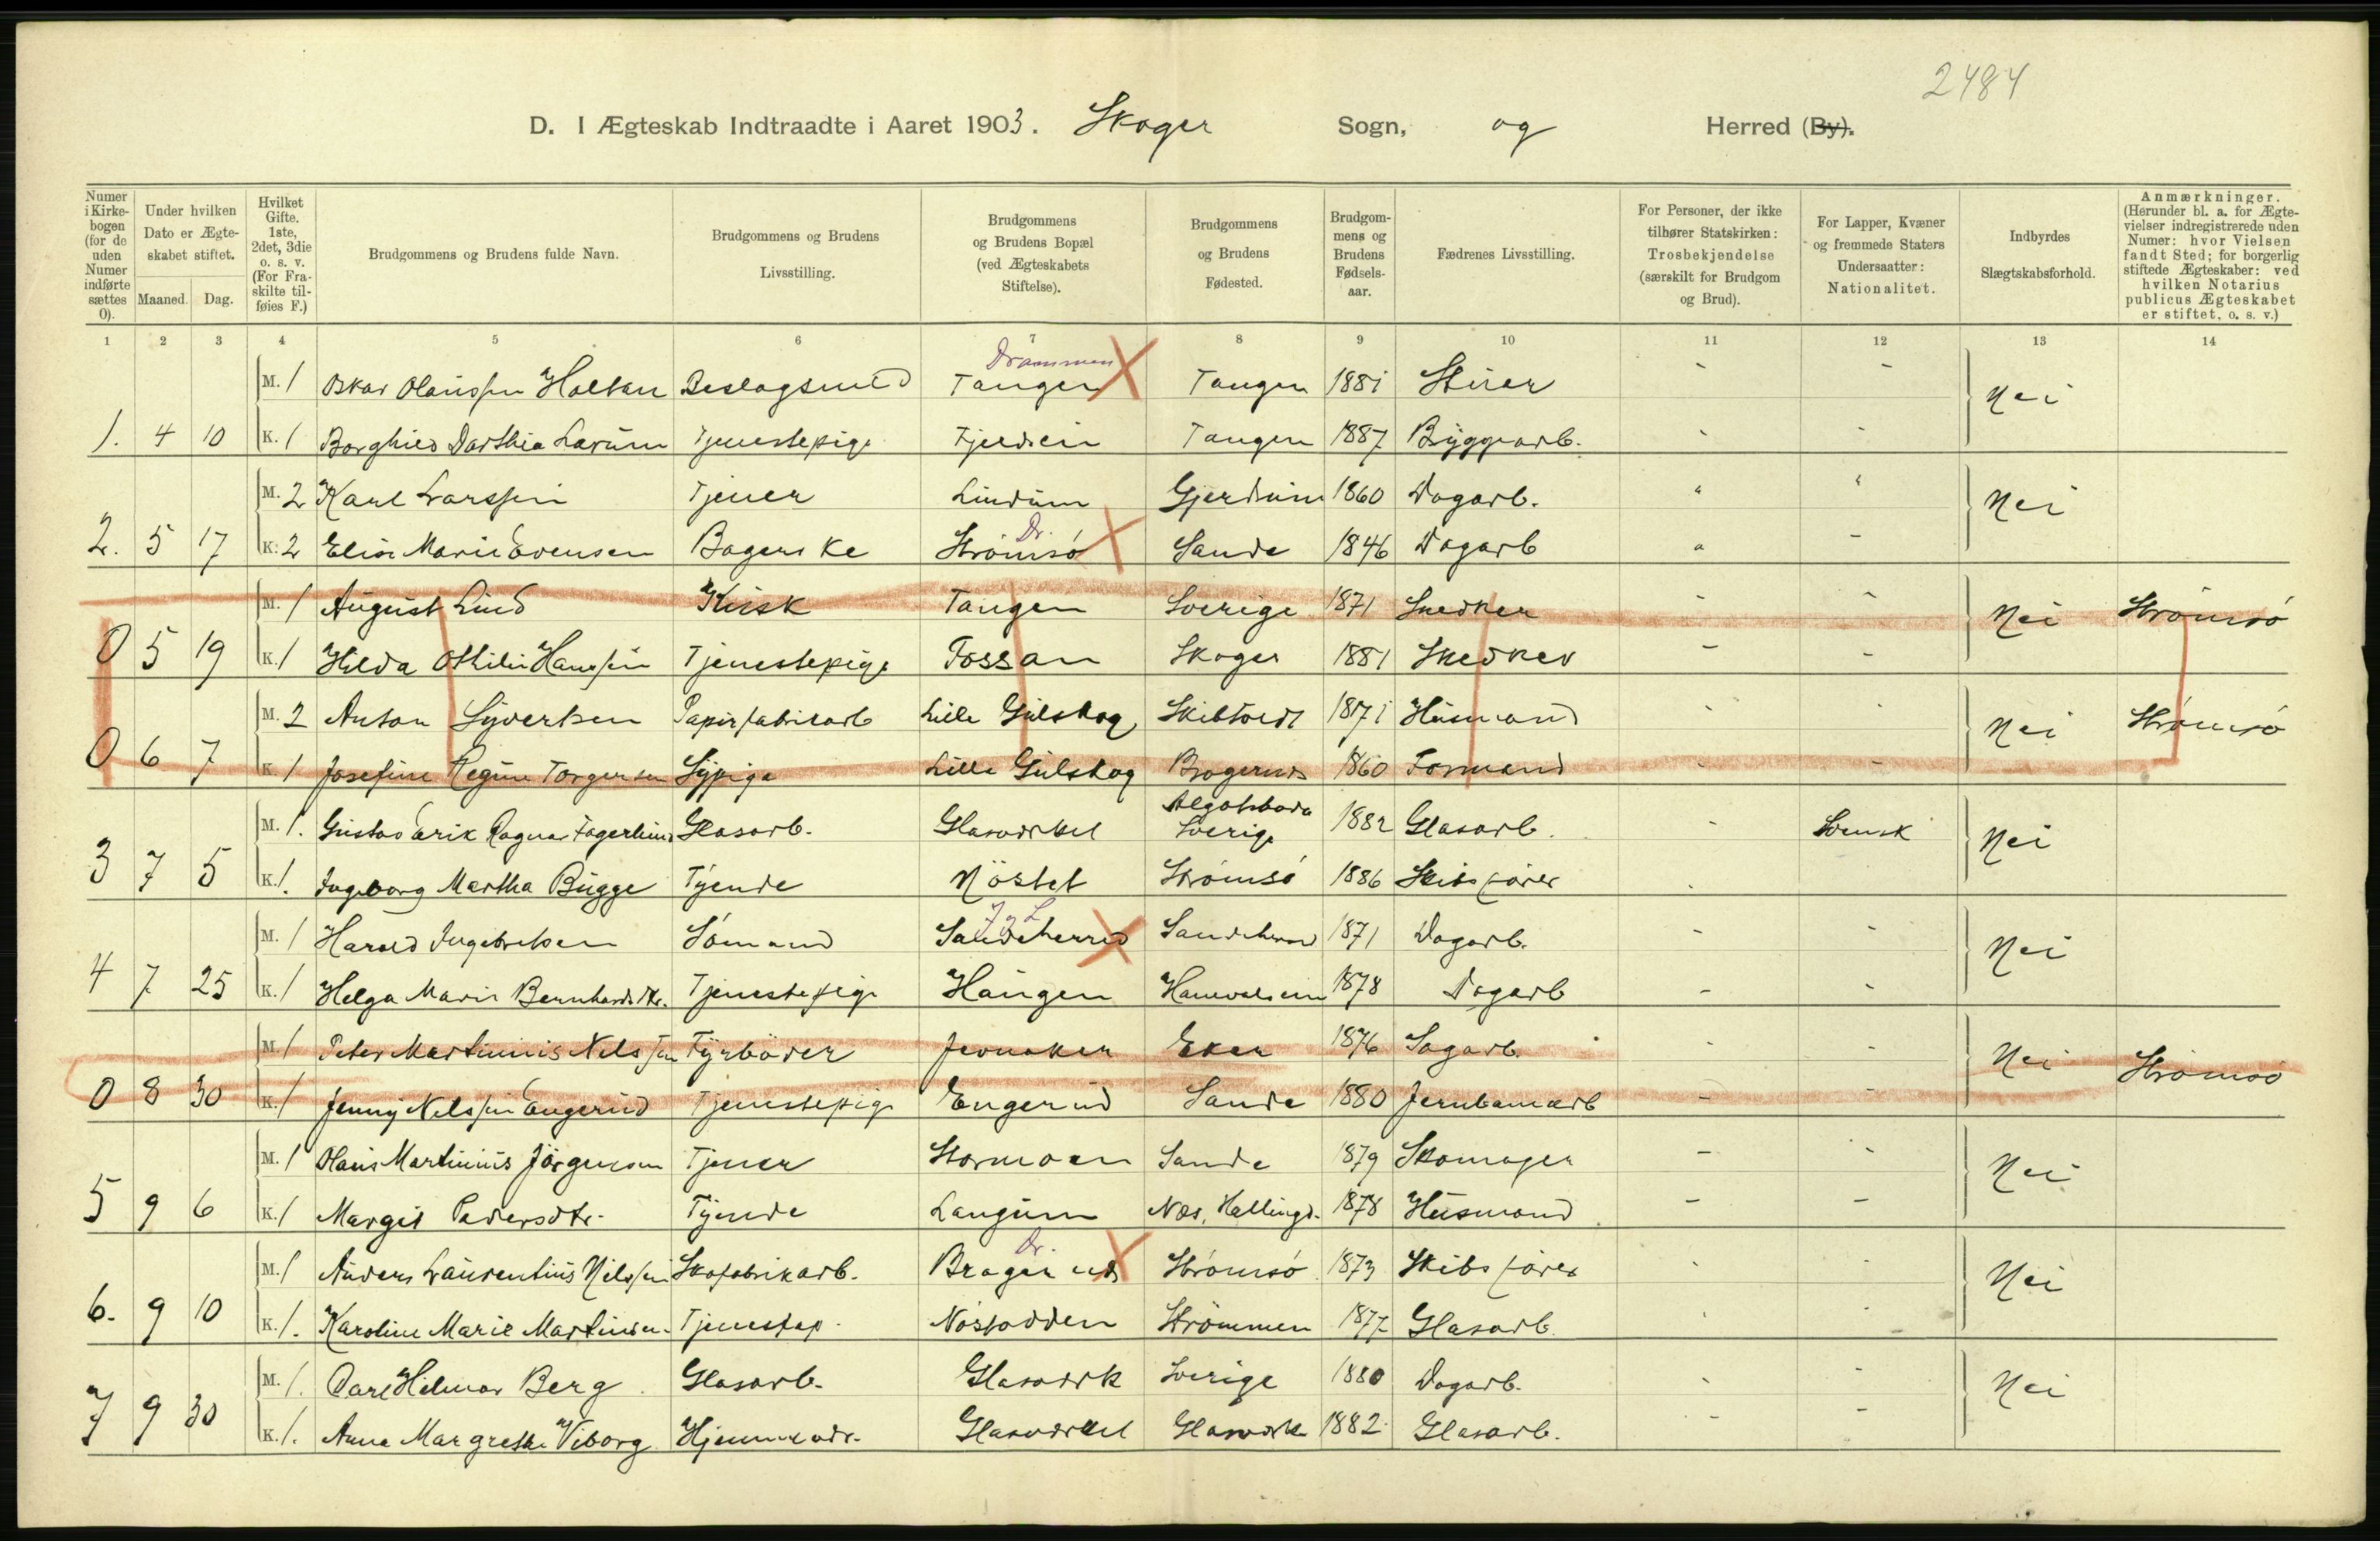 2484
D. I Ægteskab Indtraadte i Aaret 1903. Skoger Sogn, og Herred (By).
Numer i Kirkebogen (for de uden Numer indførte sættes 0).
Under hvilken Dato er Ægteskabet stiftet.
Maaned. Dag.
Hvilket Gifte. 1ste, 2det, 3die o. s. v. (For Fraskilte tilføies F.)
Brudgommens og Brudens fulde Navn.
Brudgommens og Brudens Livsstilling.
Brudgommens og Brudens Bopæl (ved Ægteskabets Stiftelse).
Brudgommens og Brudens Fødested.
Brudgommens og Brudens Fødselsaar.
Fædrenes Livsstilling.
For Personer, der ikke tilhører Statskirken: Trosbekjendelse (særskilt for Brudgom og Brud).
For Lapper, Kvæner og fremmede Staters Undersaatter: Nationalitet.
Indbyrdes Slægtskabsforhold.
Anmærkninger. (Herunder bl. a. for Ægtevielser indregistrerede uden Numer: hvor Vielsen fandt Sted; for borgerlig stiftede Ægteskaber: ved hvilken Notarius publicus Ægteskabet er stiftet, o. s. v.)
1 2 3 4 5 6 7 8 9 10 11 12 13 14
Drammen
M. 1 Oskar Olaussen Holtan Beslagsmed Tangen Tangen 1881 Stuer - - Nei
1. 4 10 K. 1 Borghild Darthea Larum Tjenestepige Fjeldsein Tangen 1887 Bryggearb. - -
M. 2 Karl Larssen Tjener Lindum Gjerdrum 1860 Dagarb. " " Nei
Dr.
2. 5 17 K. 2 Elise Marie Evensen Bagerske Strömsö Sande 1846 Dagarb " -
M. 1 August Lind Kusk Tangen Sverige 1871 Snedker - - Nei Strömsö
0 5 19 K. 1 Hilda Othilie Hanssen Tjenestepige Fossan Skoger 1881 Snedker - -
M. 2 Anton Syvertsen Papirfabrikarb Lille Gulskog Skibtvedt 1871 Husmand - - Nei Strömsö
0 6 7 K. 1 Josefine Regine Torgersen Sypige Lille Gulskog Bragernds 1860 Formand - -
M. 1. Gustav Erik Ragnar Fagerlund Glasarb. Glasværket Algotsboda Sverige 1882 Glasarb. - Svensk Nei
3 7 5 K. 1. Ingeborg Martha Bugge Tyende Nöstet Strömsö 1886 Skibsförer
J. L
M. 1 Harald Ingebretsen Sömand Sandeherred Sandeherred 1871 Dagarb. - - Nei
4 7 25 K. 1 Helga Marie Bernhardsdtr. Tjenestepige Haugen 1878 Dagarb - -
M. 1 Peter Martinius Nelssen Fyrböder Jevnaker Eker 1876 Sagarb. - - Nei Strömsö
0 8 30 K. 1 Jenny Nelssen Engerud Tjenestepige Engerud Sande 1880 Jernbanearb - -
M. 1 Olaus Martinius Jörgensen Tjener Stormoen Sande 1879 Skomager - - Nei
5 9 6 K. 1 Margit Pedersdtr. Tyende Langum Næs, Hallingd. 1878 Husmand - -
Dr.
M. 1 Anders Laurentius Nilssen Skofabrikarb. Bragernds Strömsö 1873 Skibsförer - - Nei
6. 9 10 K. 1. Karoline Marie Martinsen. Tjenestep. Nöstodden Strömmen 1877 Glasarb. - -
M. 1. Carl Hilmar Berg Glasarb. Glasværk Sverige 1880 Dagarb. - - Nei
7 9 30 K. 1. Anna Margrethe Viborg Hjemmeværk. Glasværket Glasværk 1882 Glasarb. - -